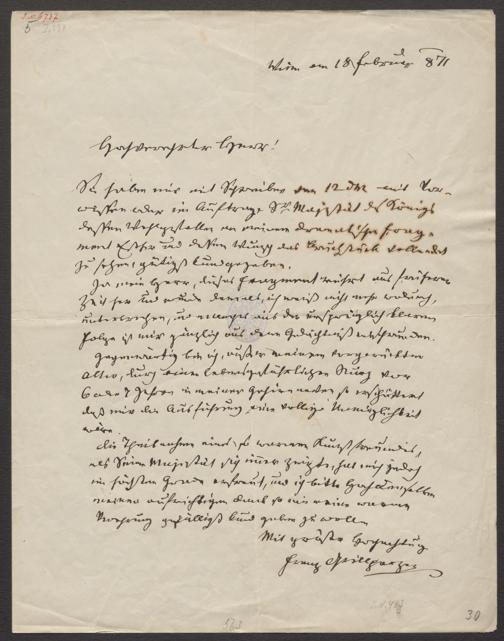 Wien am 18 Februar 871
Hochverehrter Herr!
Sie haben mir mit Schreiben vom 12 dM mit Vor-
wissen oder im Auftrage Sr Majestät des Königs
dessen Wohlgefallen an meinem dramatischen Frag-
ment Esther und dessen Wunsch das Bruchstück vollendet
zu sehen, gütigst kundgegeben.
Ja mein Herr, dieses Fragment rührt aus früherer
Zeit her und wurde damals, ich weiß nicht mehr wodurch,
unterbrochen, und aus der ursprünglich
Folge ist mir gänzlich aus dem Gedächtniß entschwunden.
Gegenwärtig bin ich, außer meinem vorgerückten
Alter, durch einen lebensgefährlichen Sturz vor
6 oder 7 Jahren in meinen Gehirnnerven so erschüttert
daß mir die Ausführung eine völlige Unmöglichkeit
wäre.
Die Theilnahme eines so warmen Kunstfreundes,
als Seine Majestät sich immer zeigte, hat mich jedoch
im höchsten Grade erfreut, und ich bitte Hochdenselben
meinen aufrichtigen Dank so wie meine warme
Verehrung gefälligst kund geben zu wollen
Mit größter Hochachtung
Franz Grillparzer
30